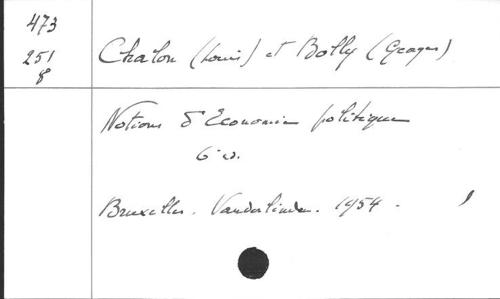 473
251
8
Chalon (Louis) et Bolly (Georges)
Notions d'Economie politique
6e éd.
Bruxelles. Vanderlinden. 1954.